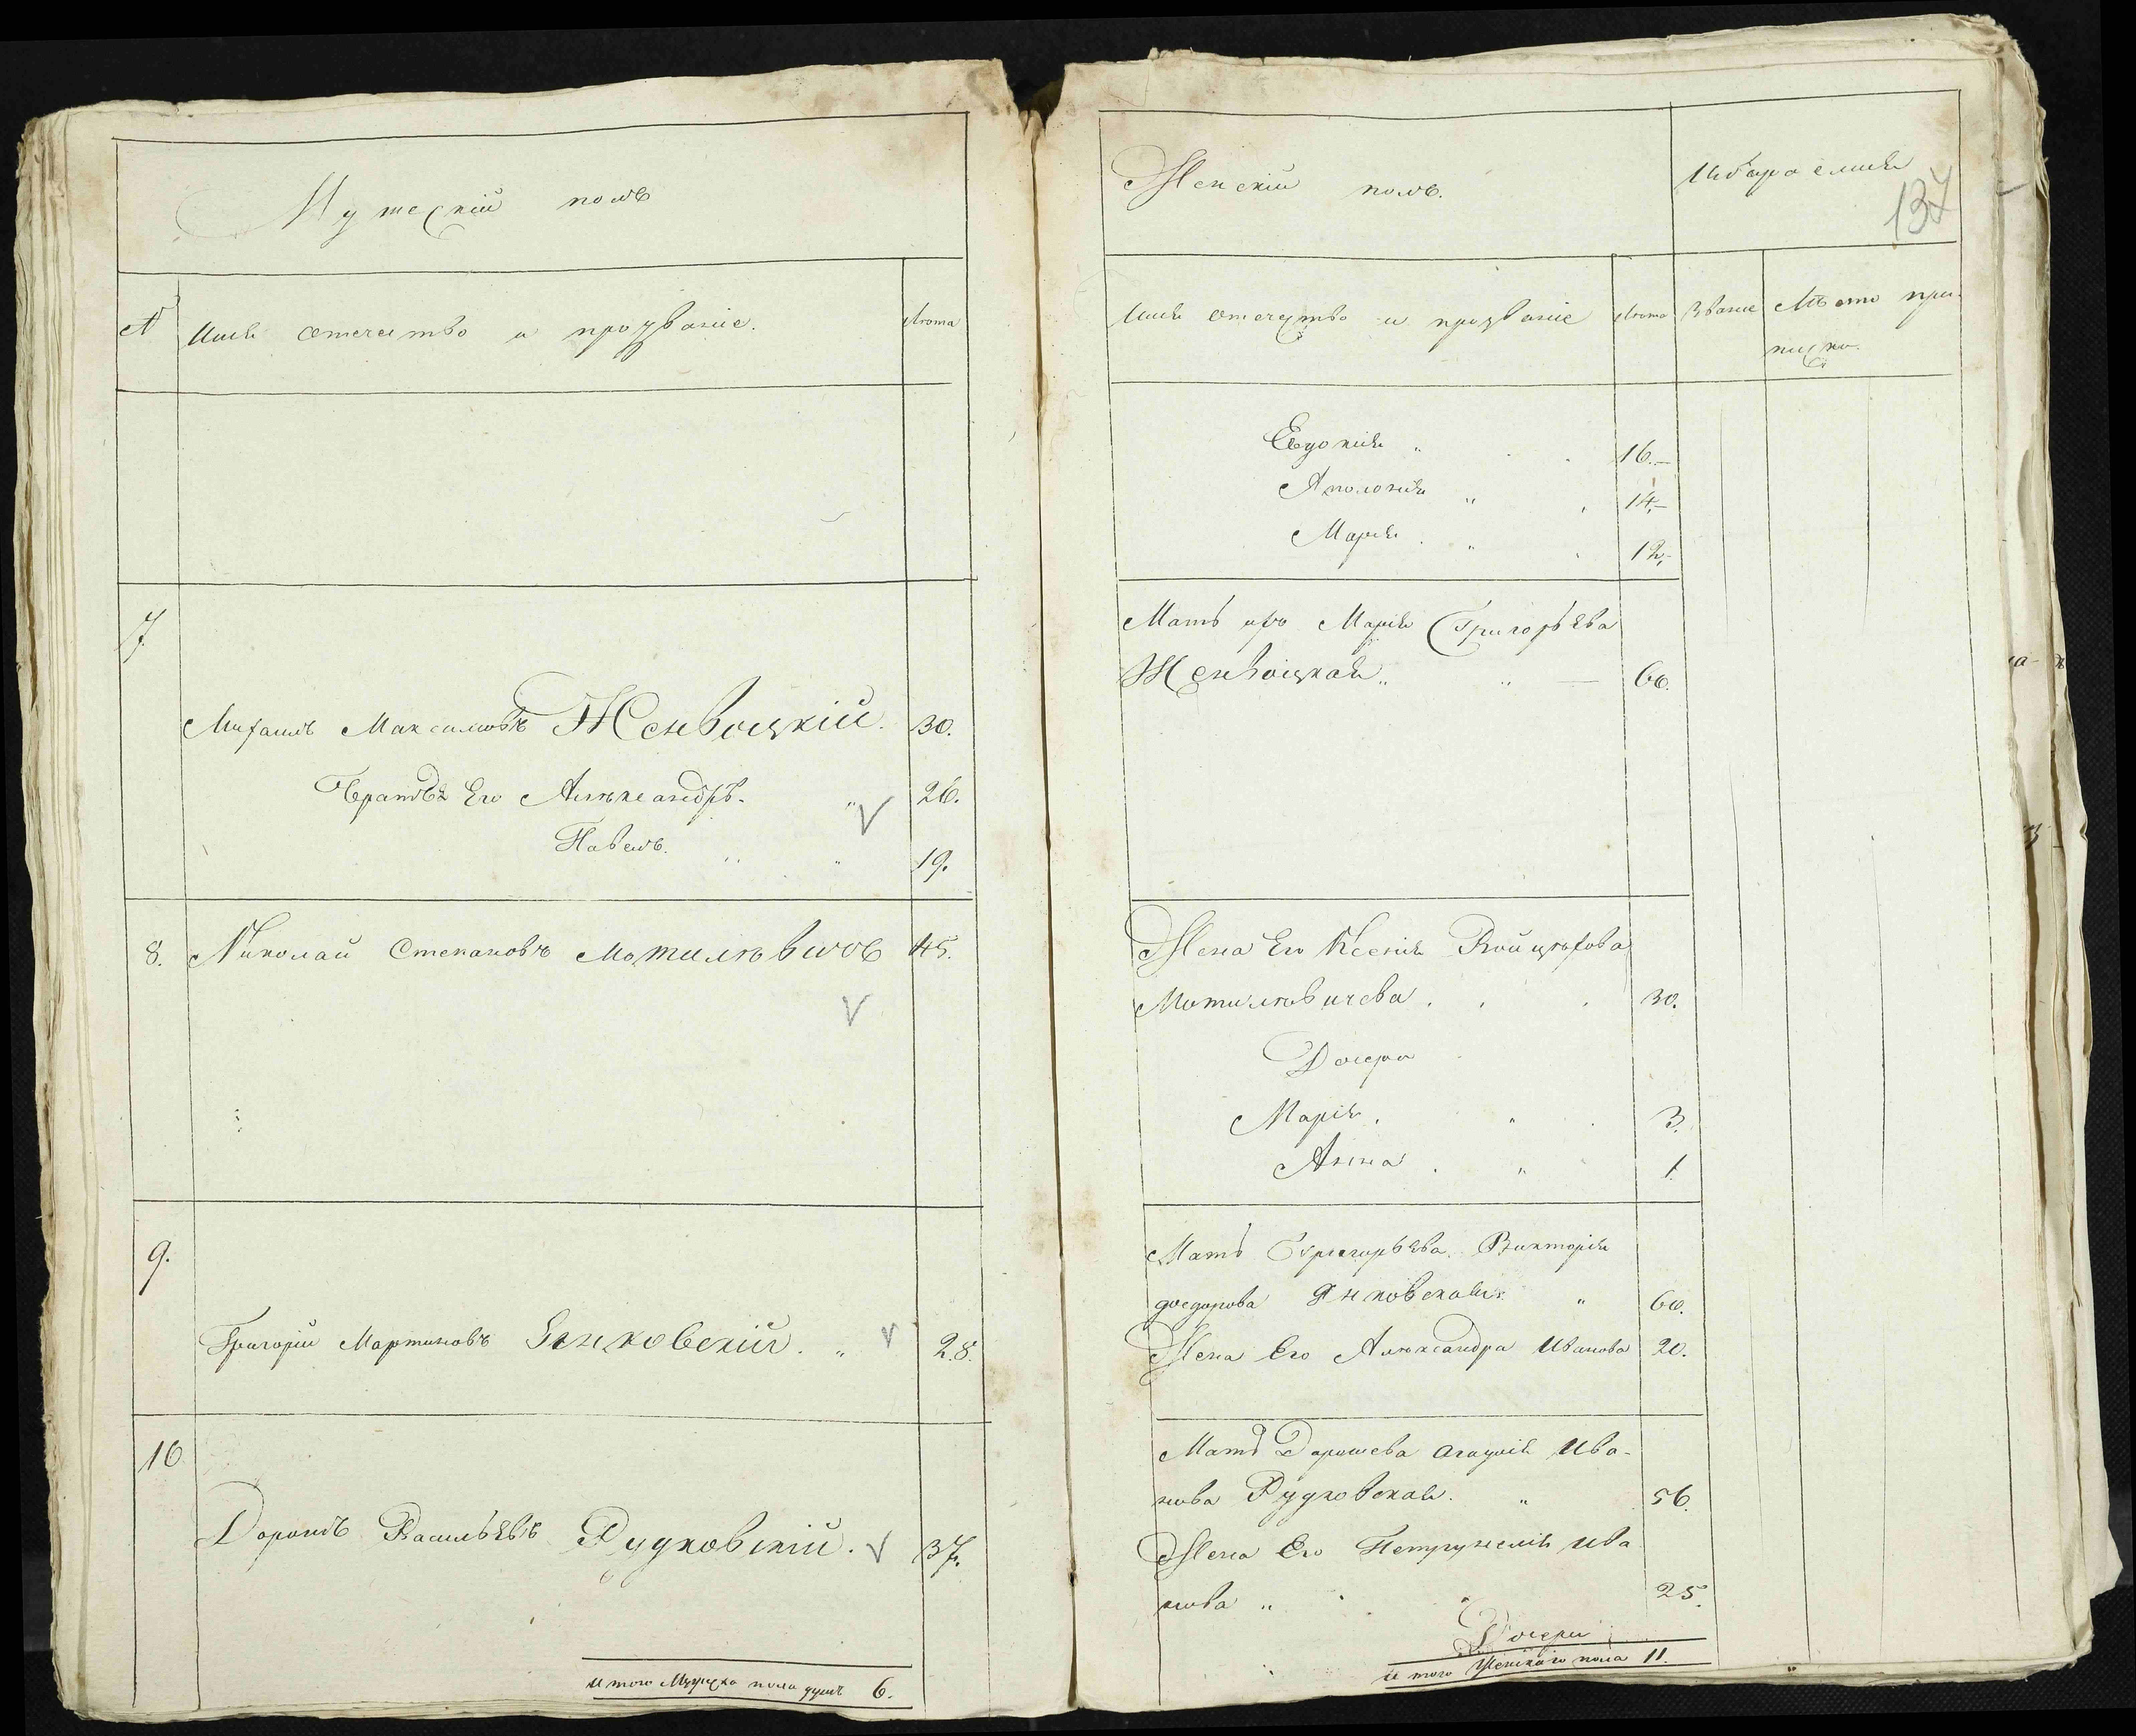 Мужескій полъ
№ Имя отечество и прозваніе. Лѣта
7.
Михаилъ Максимовъ Женвоцкій. 30.
Братья Его Александръ. 26.
Павелъ. 19.
8. Николай Степановъ Мотилевичъ 45.
9.
Григорій Мартиновъ Янковскій. 28.
10
Доронъ Васильевъ Рудковскій. 37.
Итого Мужеска пола душъ 6.
Женскій полъ.
137
Имя отечество и прозваніе Лѣта Званіе Мѣсто при-
писки.
Евдокія 16.
Аполонія 14.
Марія 12.
Мать ихъ Марія Григорьева
Женвоцкая 60.
Жена Его Ксенія Войцехова
Мотилевичева 30.
Дочери
Марія 3.
Анна 1.
Мать Григорьева Викторія
Федорова Янковская 60.
Жена Его Александра Иванова 20.
Мать Ива-
нова Рудковская. 56.
Жена Его Петрунелія Ива
нова 25.
Дочери
Итого Женскаго пола 11.